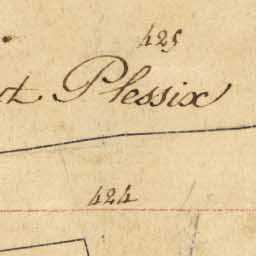 425
et Plessix
424